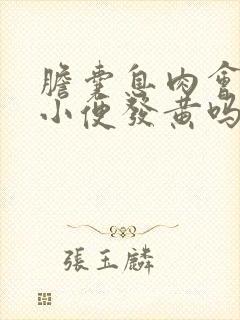 膽囊息肉會
小便發黃嗎
張玉麟